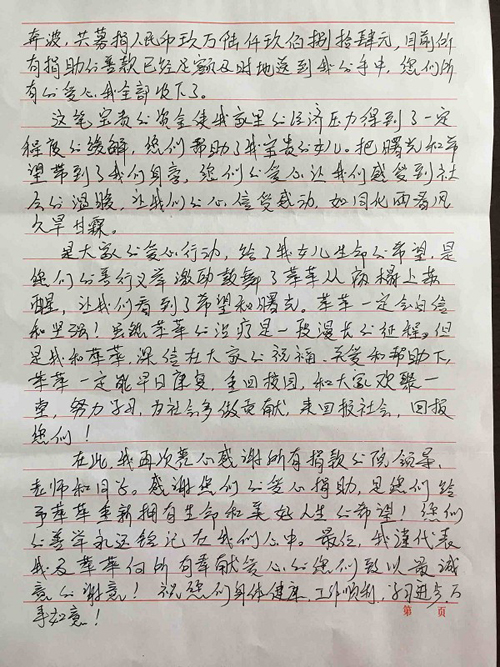 奔波,共募捐人民币玖万陆仟玖佰捌拾肆元,目前所
有捐助的善款已经足额及时地送到我的手中,您们所
有的爱心我全部收下了。
这笔宝贵的资金使我家里的经济压力得到了一定
程度的缓解,您们帮助了我宝贵的女儿。把曙光和希
望带到了我们身旁,您们的爱心让我们感受到社
会的温暖,让我们的心倍受感动,如同化雨春风
久旱甘霖。
是大家的爱心行动,给了我女儿生命的希望,是
您们的善行义举激励鼓舞了苹苹从病榻上换
醒,让我们看到了希望和曙光。苹苹一定会自信
和坚强!虽说苹苹的治疗是一段漫长的征程,但
是我和苹苹深信在大家的祝福、关爱和帮助下,
苹苹一定能早日康复,重回校园,和大家欢聚一
堂,努力学习,为社会多做贡献,来回报社会,回报
您们!
在此,我再次衷心感谢所有捐款的院领导、
老师和同学。感谢您们的爱心捐助,是您们给
予苹苹重新拥有生命和美好人生的希望!您们
的善举永远铭记在我们心中。最后,我谨代表
我及苹苹向所有奉献爱心的您们致以最诚
意的谢意!祝您们身体健康,工作顺利,学习进步,万
事如意!
第 页